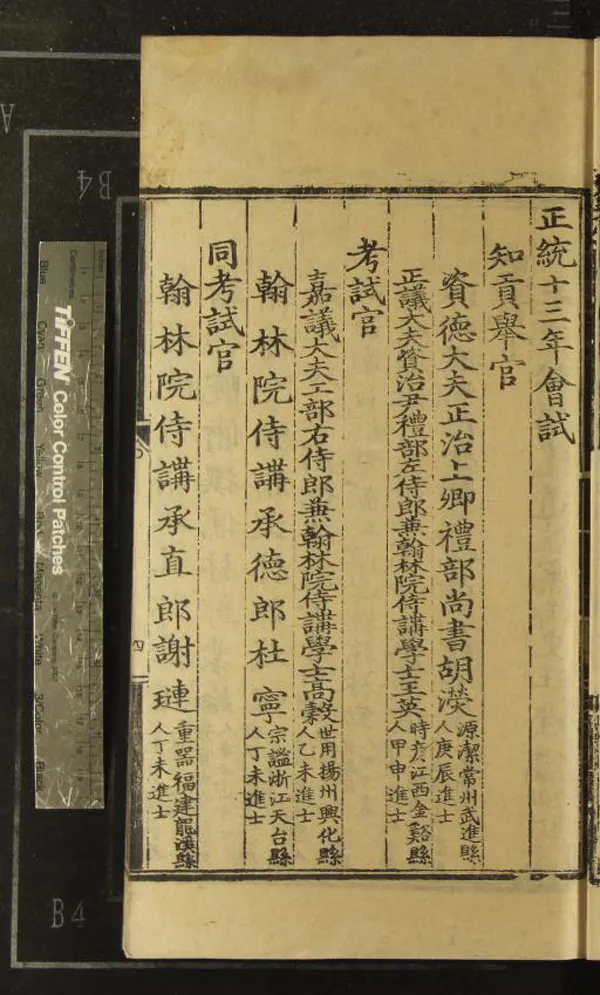 正統十三年會試
知貢舉官
資德大夫正治上卿禮部尚書胡濙源潔常州武進縣
人庚辰進士
正議大夫資治尹禮部左侍郎兼翰林院侍講學士王英時彥江西金谿縣
人甲申進士
考試官
嘉議大夫工部右侍郎兼翰林院侍講學士高穀世用揚州興化縣
人乙未進士
翰林院侍講承德郎杜寧宗謐浙江天台縣
人丁未進士
同考試官
翰林院侍講承直郎謝璉重器福建龍溪縣
人丁未進士
四
TIFFEN Color Control Patches
Blue
Cyan
Green
Yellow
Red
Magenta
White
3/Color
Black
B4
B4
A